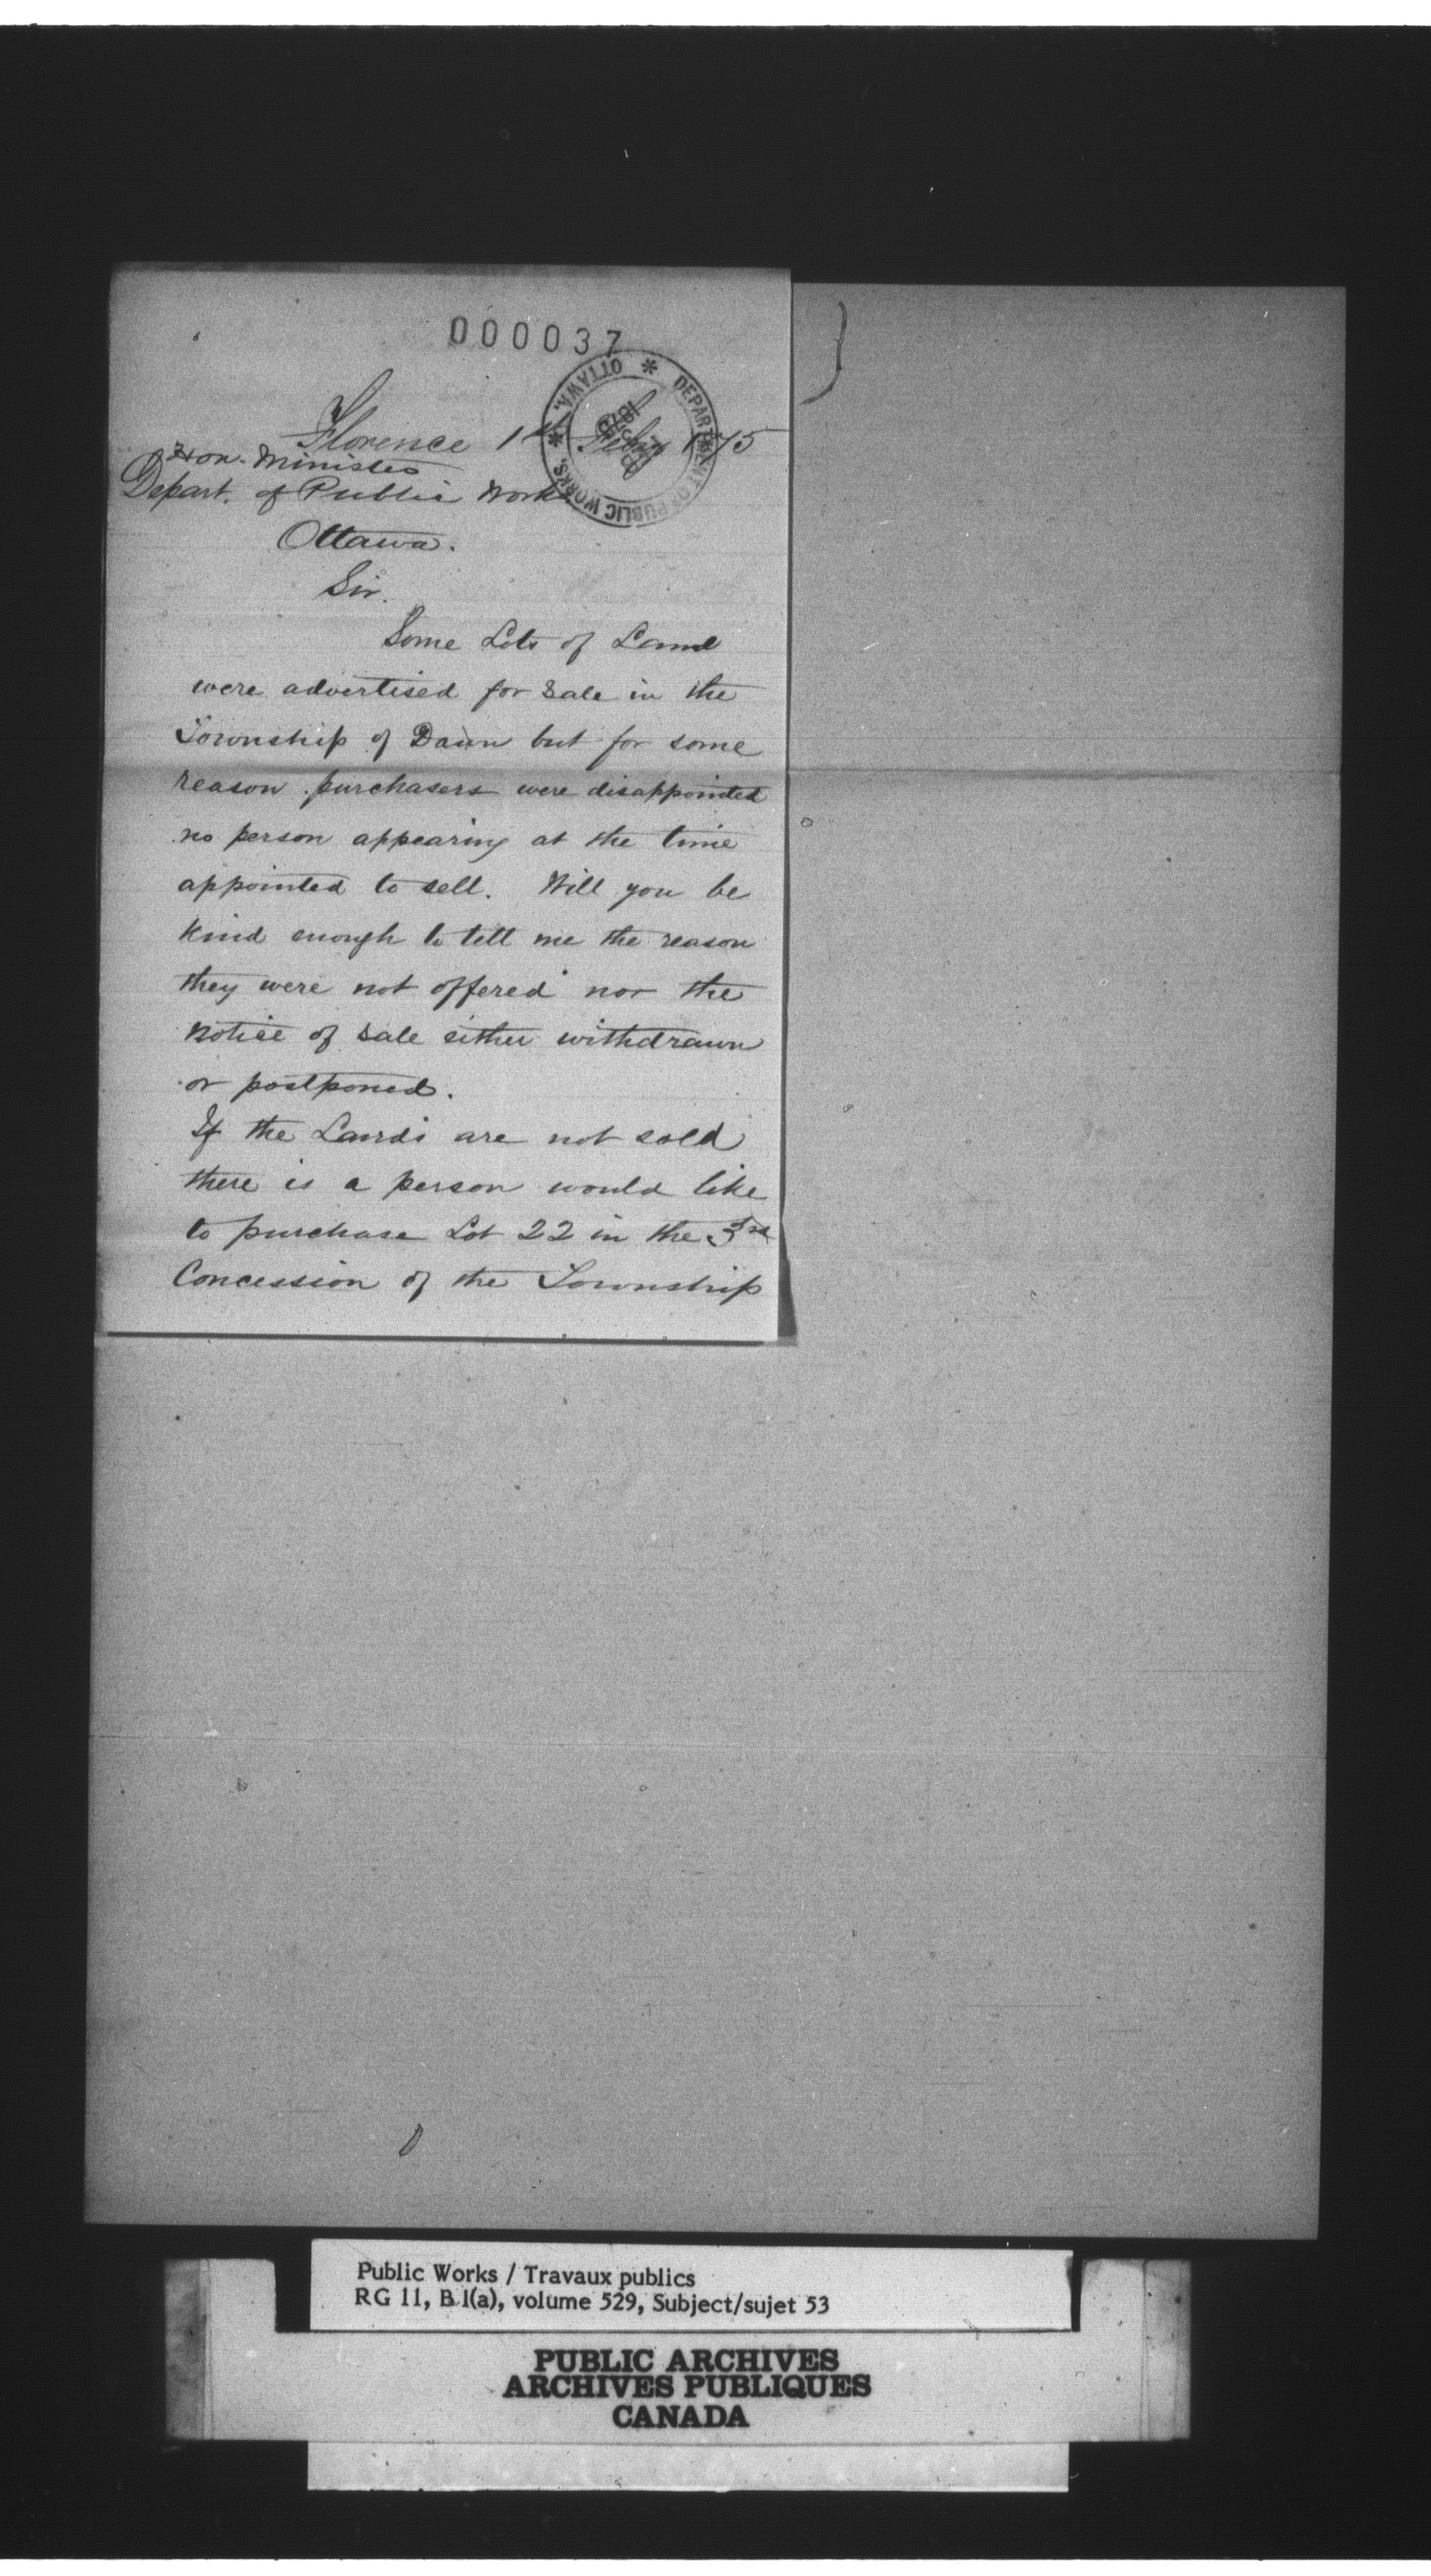 000037
DEPARTMENT OF PUBLIC WORKS. * OTTAWA. *
Florence 1st Feby 1875
Hon. Minister
Depart. of Public Works
Ottawa.
Sir.
Some Lots of Land
were advertised for sale in the
Township of Dawn but for some
reason purchasers were disappointed
no person appearing at the time
appointed to sell. Will you be
kind enough to tell me the reason
they were not offered nor the
notice of sale either withdrawn
or postponed.
If the Lands are not sold
there is a person would like
to purchase Lot 22 in the 3rd
Concession of the Township
Public Works / Travaux publics
RG 11, B 1(a), volume 529, Subject/sujet 53
PUBLIC ARCHIVES
ARCHIVES PUBLIQUES
CANADA